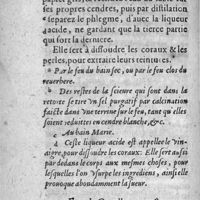 ses propres cendres, puis par distilation
separez le phlegme, d'auec la liqueur
acide, ne gardant que la tierce partie
qui sort la derniere.
Elle sert à dissoudre les coraux & les
perles, pour extraire leurs teintures.
Par le feu du bain sec, ou par le feu clos du
reuerbere.
Des restes de la scieure qui sont dans la
retorte se tire vn sel purgatif par calcination
faicte dans vne terrine sur le feu, tant qu'elles
soient reduittes en cendre blanche, &c.
Au bain Marie.
Ceste liqueur acide est appellee le vin-
aigre, pour dissoudre les coraux. Elle sert aussi
par dedans le corps aux mesmes choses, pour
lesquelles l'on vsurpe les ingrediens, ainsi elle
prouoque abondamment la sueur.